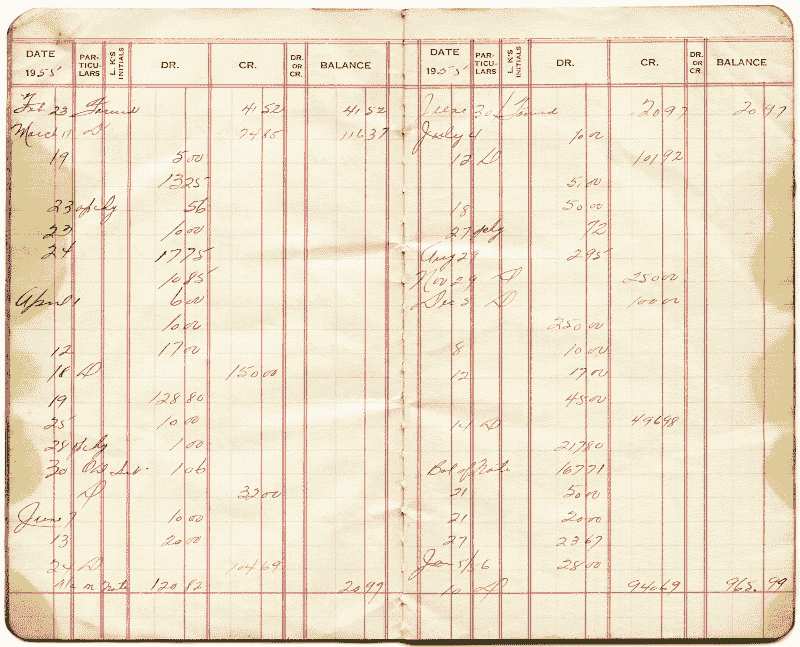 DATE 1955 PAR-TICU-LARS L. K'S INITIALS DR. CR. DR. OR CR. BALANCE
Feb 23 Forward 4152 4152
March 11 D 7485 11637
19 500
1325
23 op chg 56
23 1000
24 1775
1085
April 1 600
1000
12 1700
18 D 15000
19 12880
25 1000
28 op chg 100
30 106
D 3200
June 7 1000
13 2000
24 D 10469
on Note 12082 2097
DATE 1955 PAR-TICU-LARS L. K'S INITIALS DR. CR. DR. OR CR. BALANCE
June 30 Forward 2097 2097
July 4 1000
12 D 10192
500
18 500
27 op chg 72
Aug 29 295
Nov 29 D 25000
Dec 5 D 10000
25000
8 1000
12 1700
4500
14 D 49698
21780
Bal of Note 16771
21 500
21 2000
27 2367
Jan 5/56 2800
10 D 94069 965.99